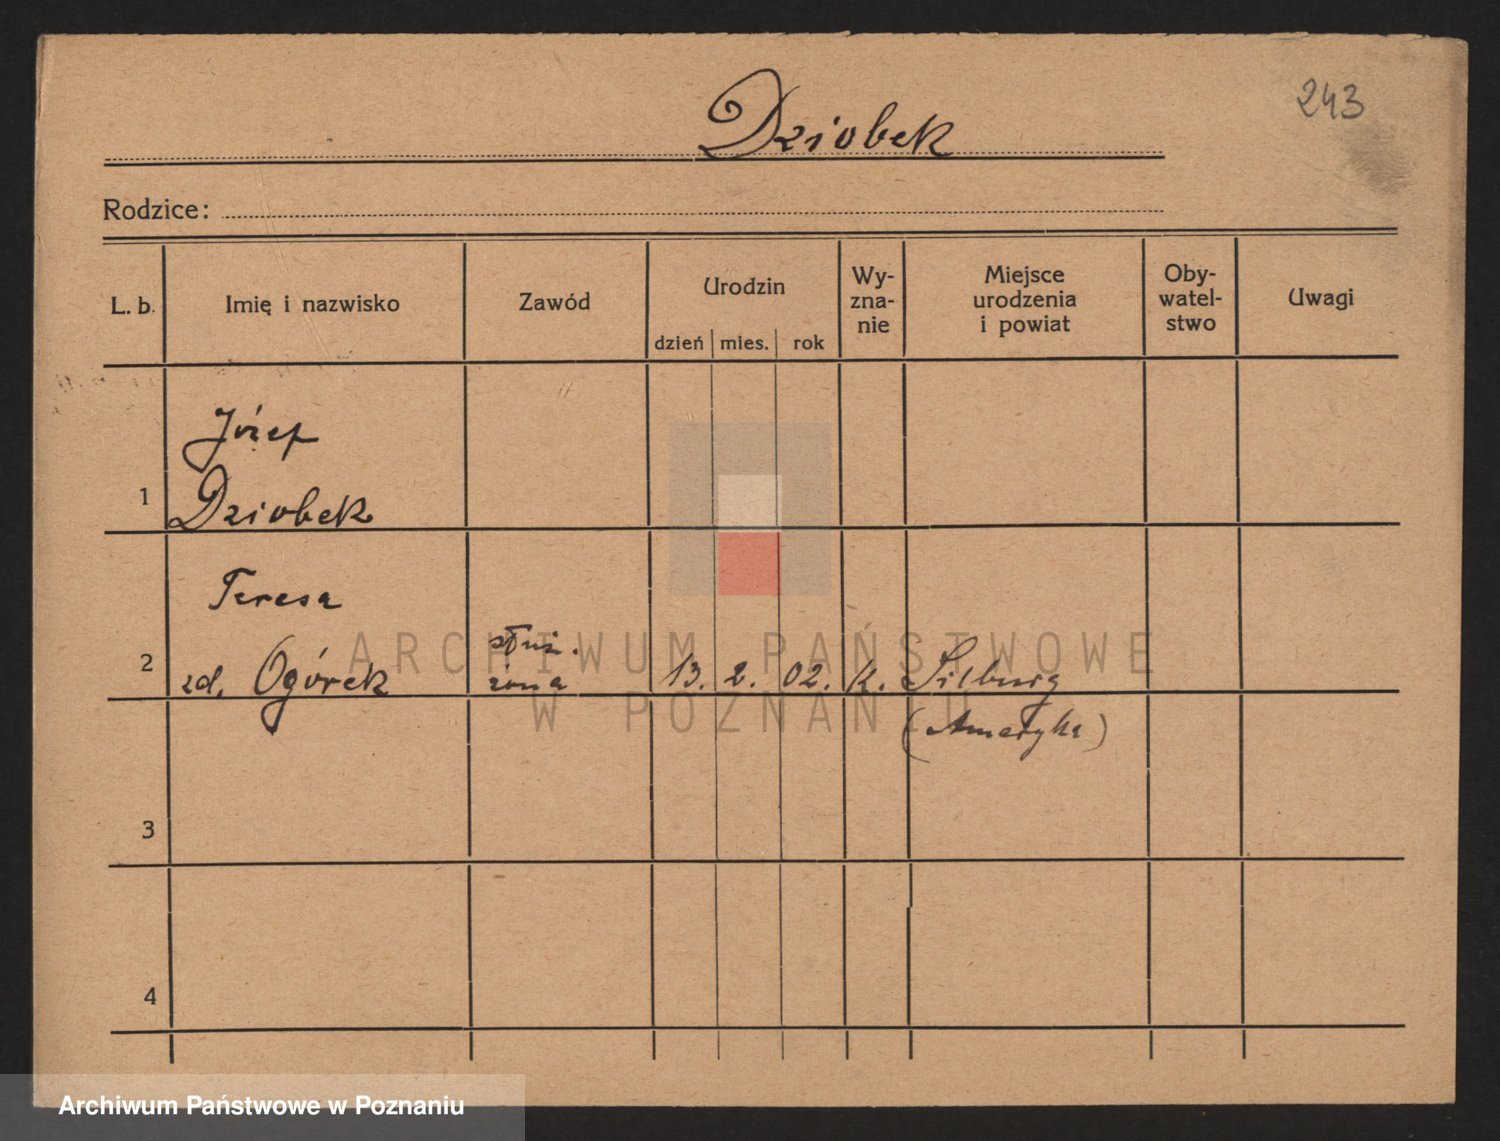 243
Dziobek
Rodzice:
L. b.
Imię i nazwisko
Zawód
Urodzin
dzień mies. rok
Wy-
zna-
nie
Miejsce
urodzenia
i powiat
Oby-
watel-
stwo
Uwagi
Józef
1 Dziobek
Teresa
służ.
2 zd. Ogórek żona 13. 2. 02. k.
(Ameryka)
3
4
ARCHIWUM PAŃSTWOWE
W POZNANIU
Archiwum Państwowe w Poznaniu